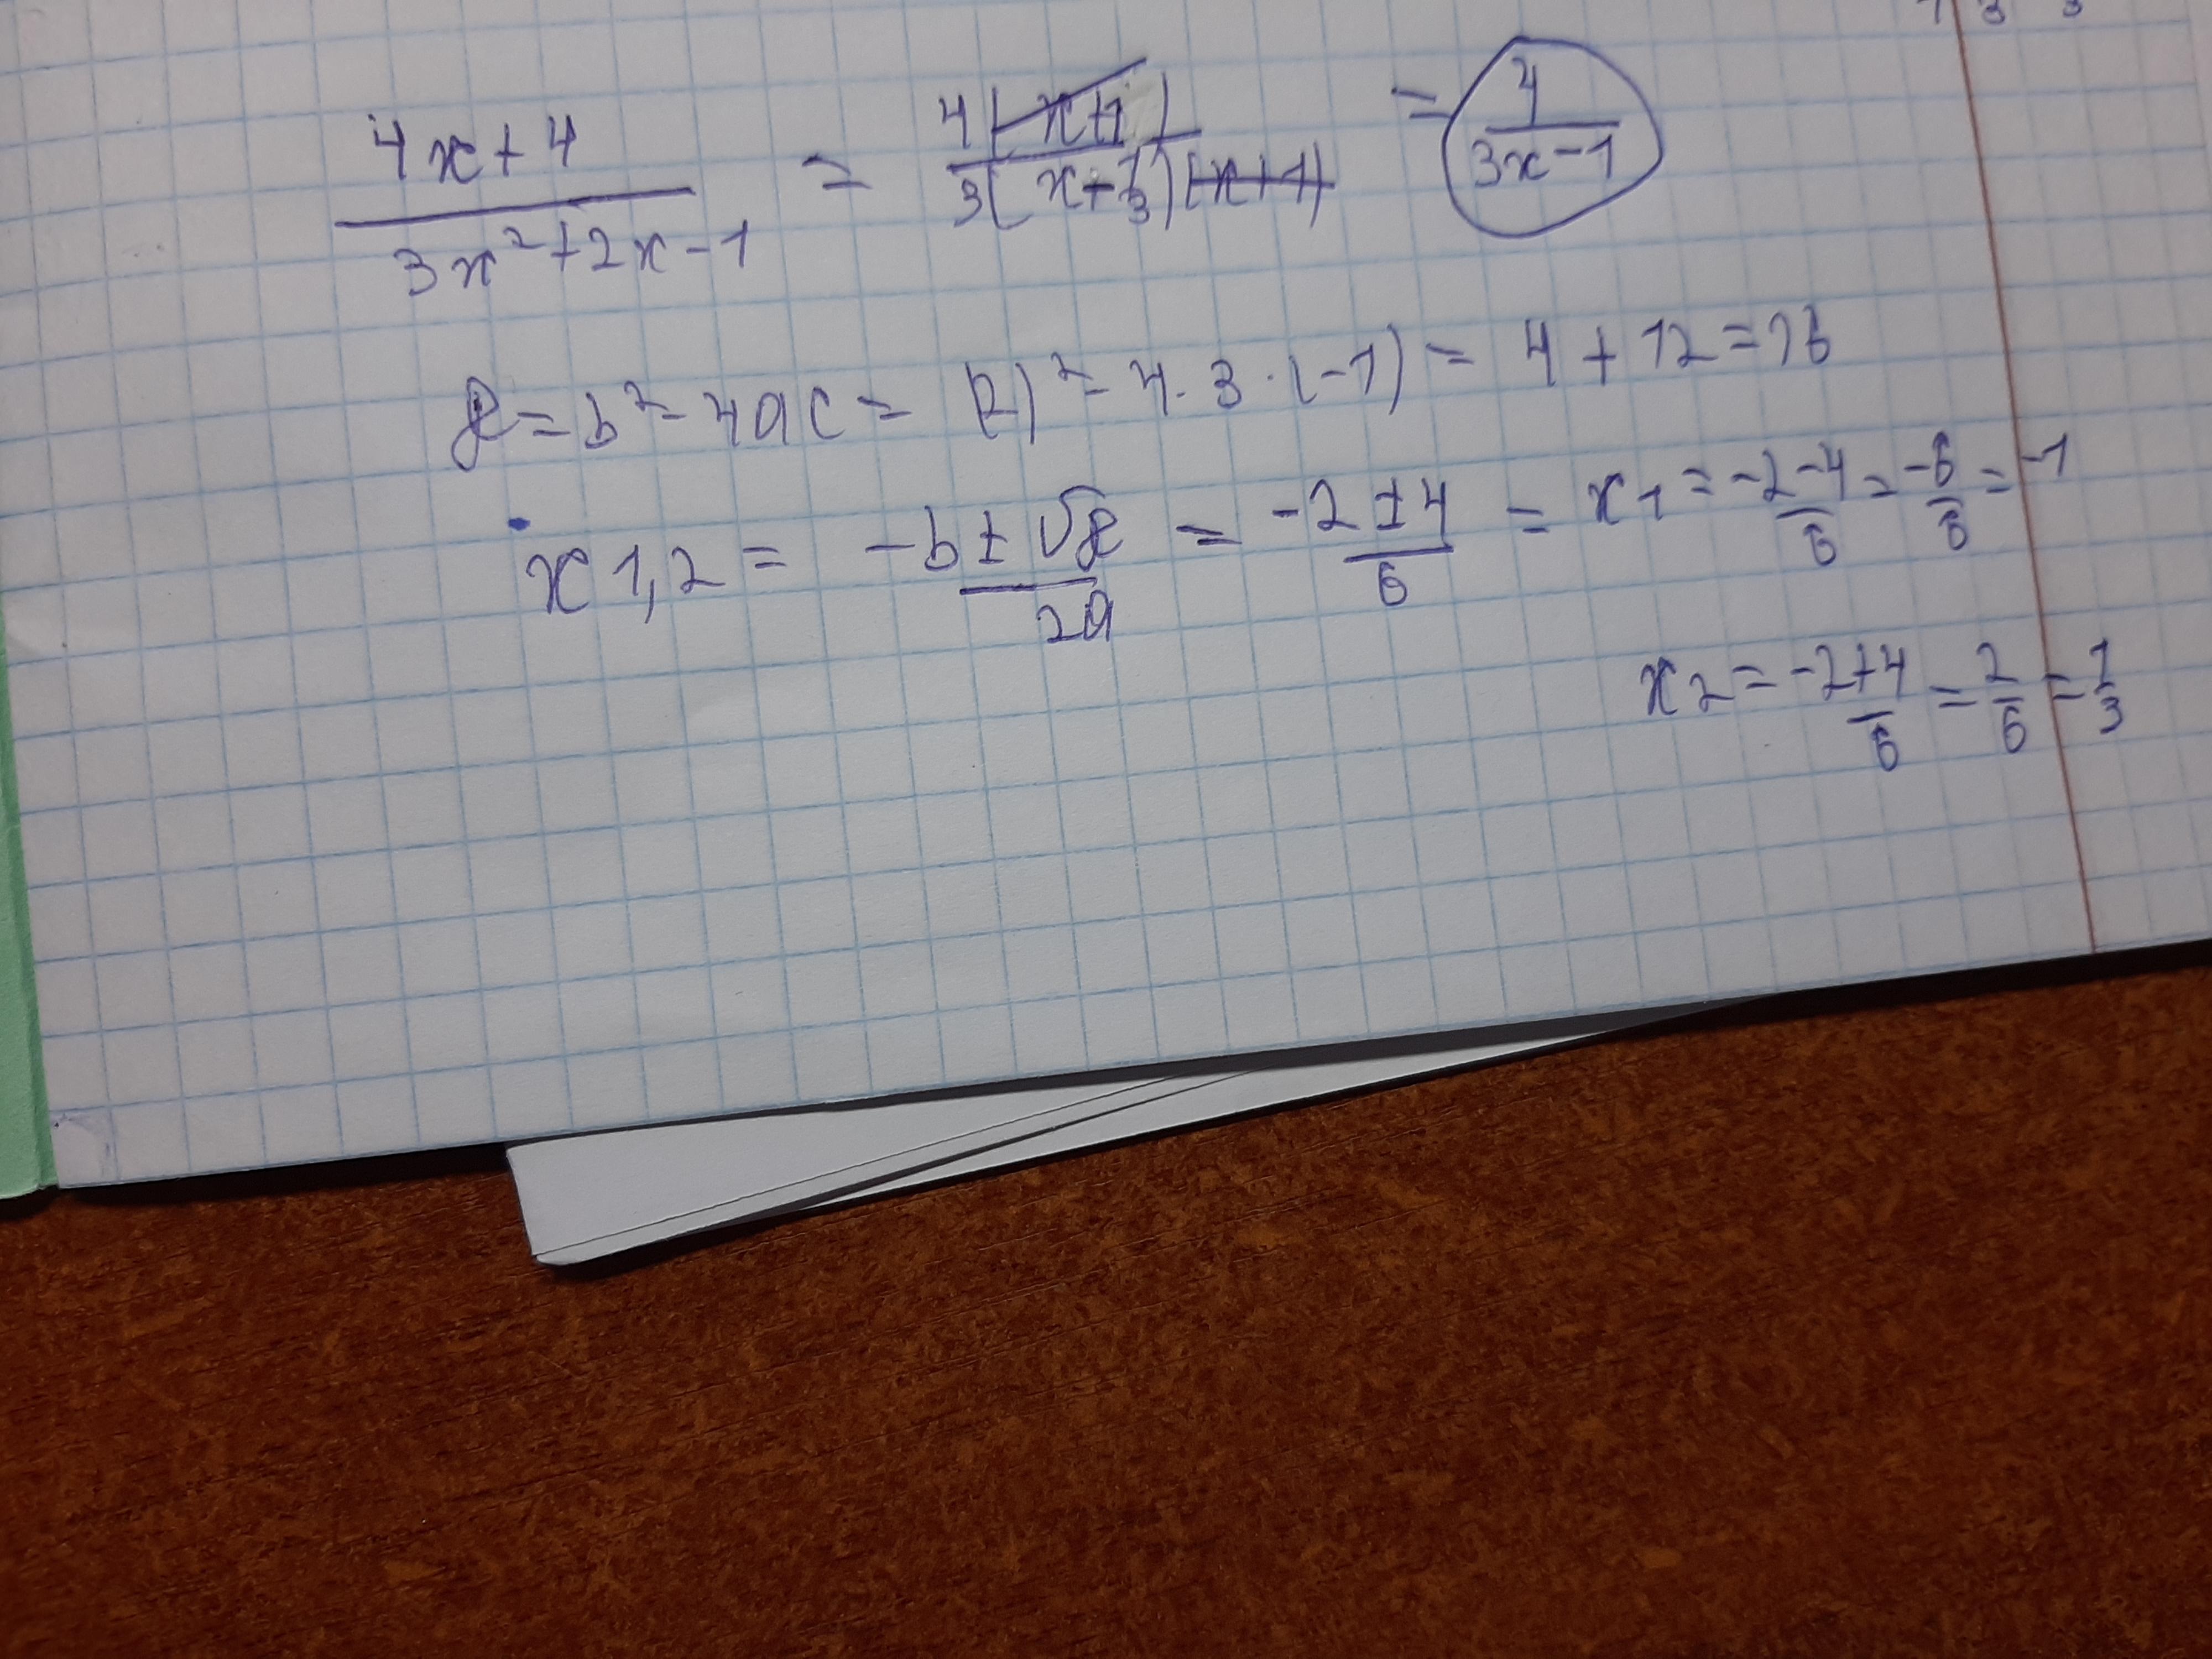 1 3 3
(4x+4)/(3x²+2x-1) = 4(x+1)/3(x-1/3)(x+1) = 4/(3x-1)
D=b²-4ac= (2)²-4·3·(-1)= 4+12=16
x1,2 = (-b±√D)/2a = (-2±4)/6 = x1=(-2-4)/6=-6/6=-1
x2=(-2+4)/6=2/6=1/3